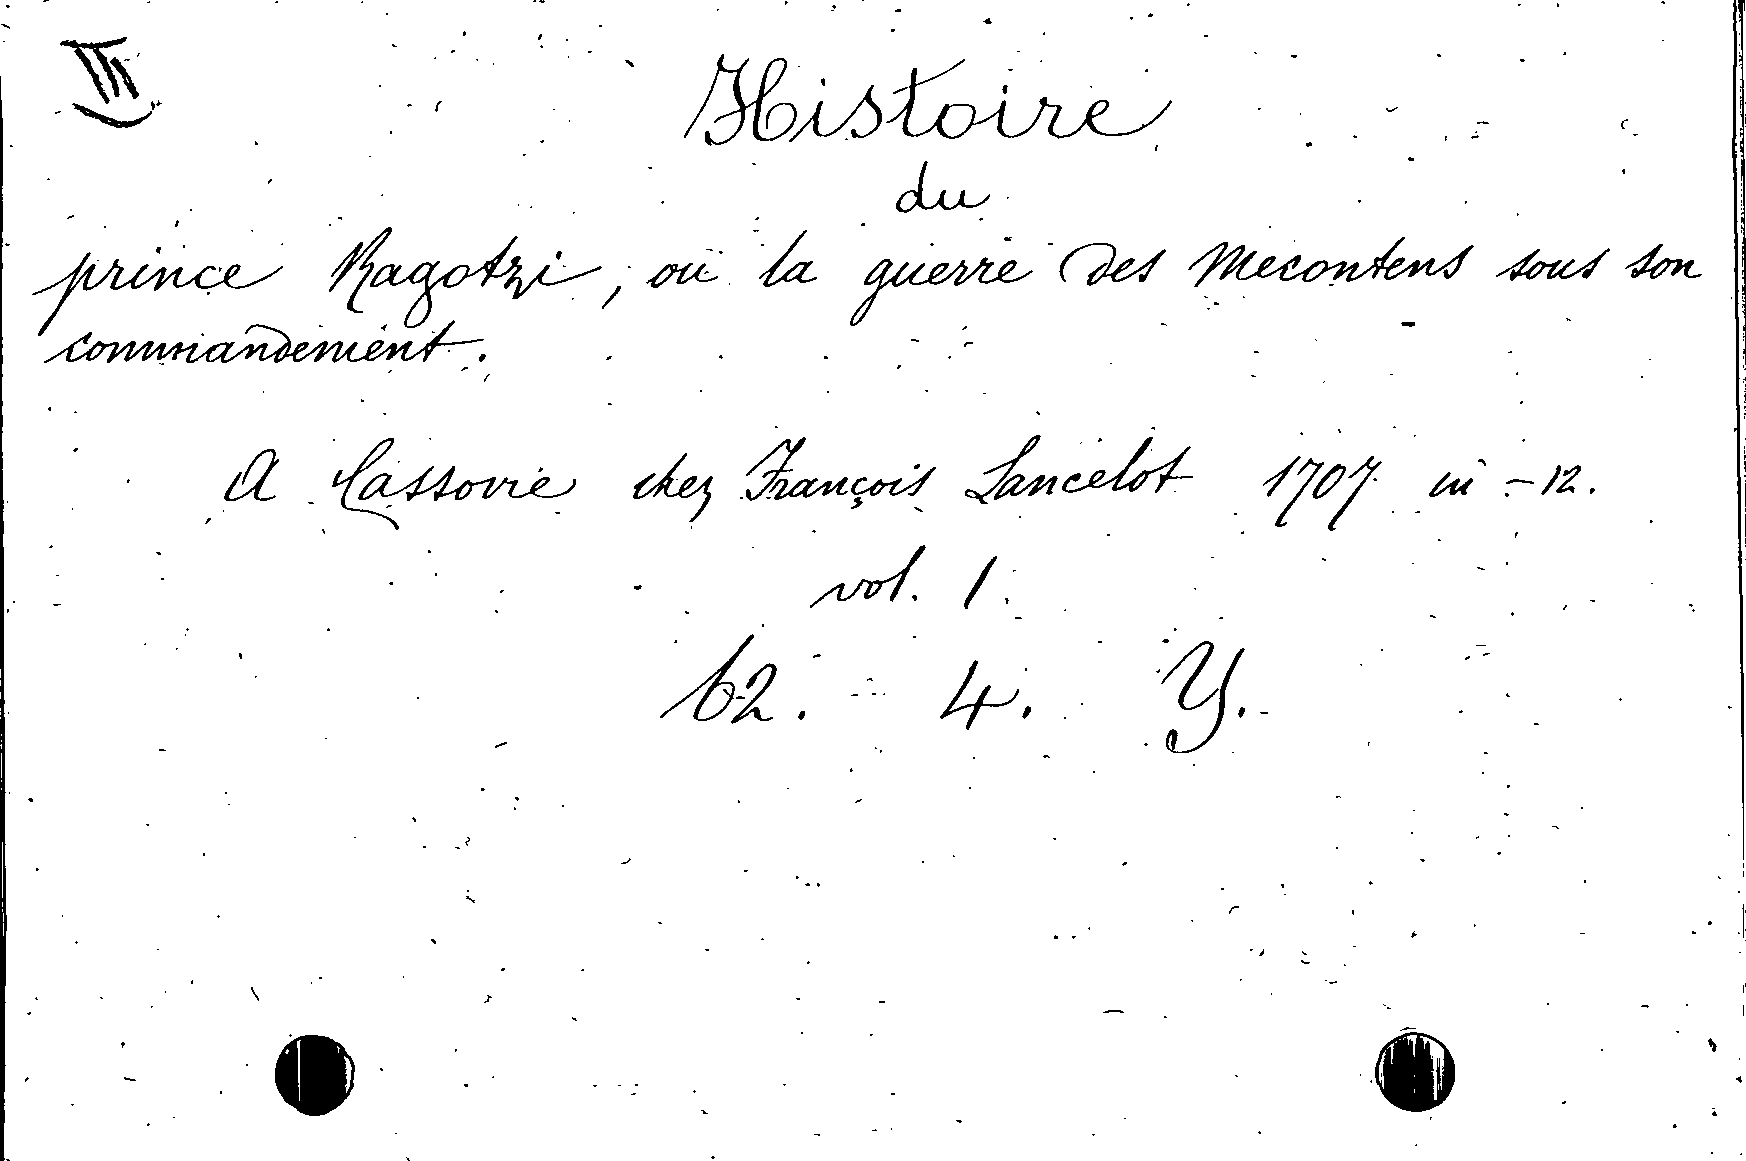 III
Histoire
du
prince Ragotzi, ou la guerre des Mecontens sous son
commandement.
A Cassovie chez François Lancelot 1707 in-12.
vol. 1.
62. 4. Y.